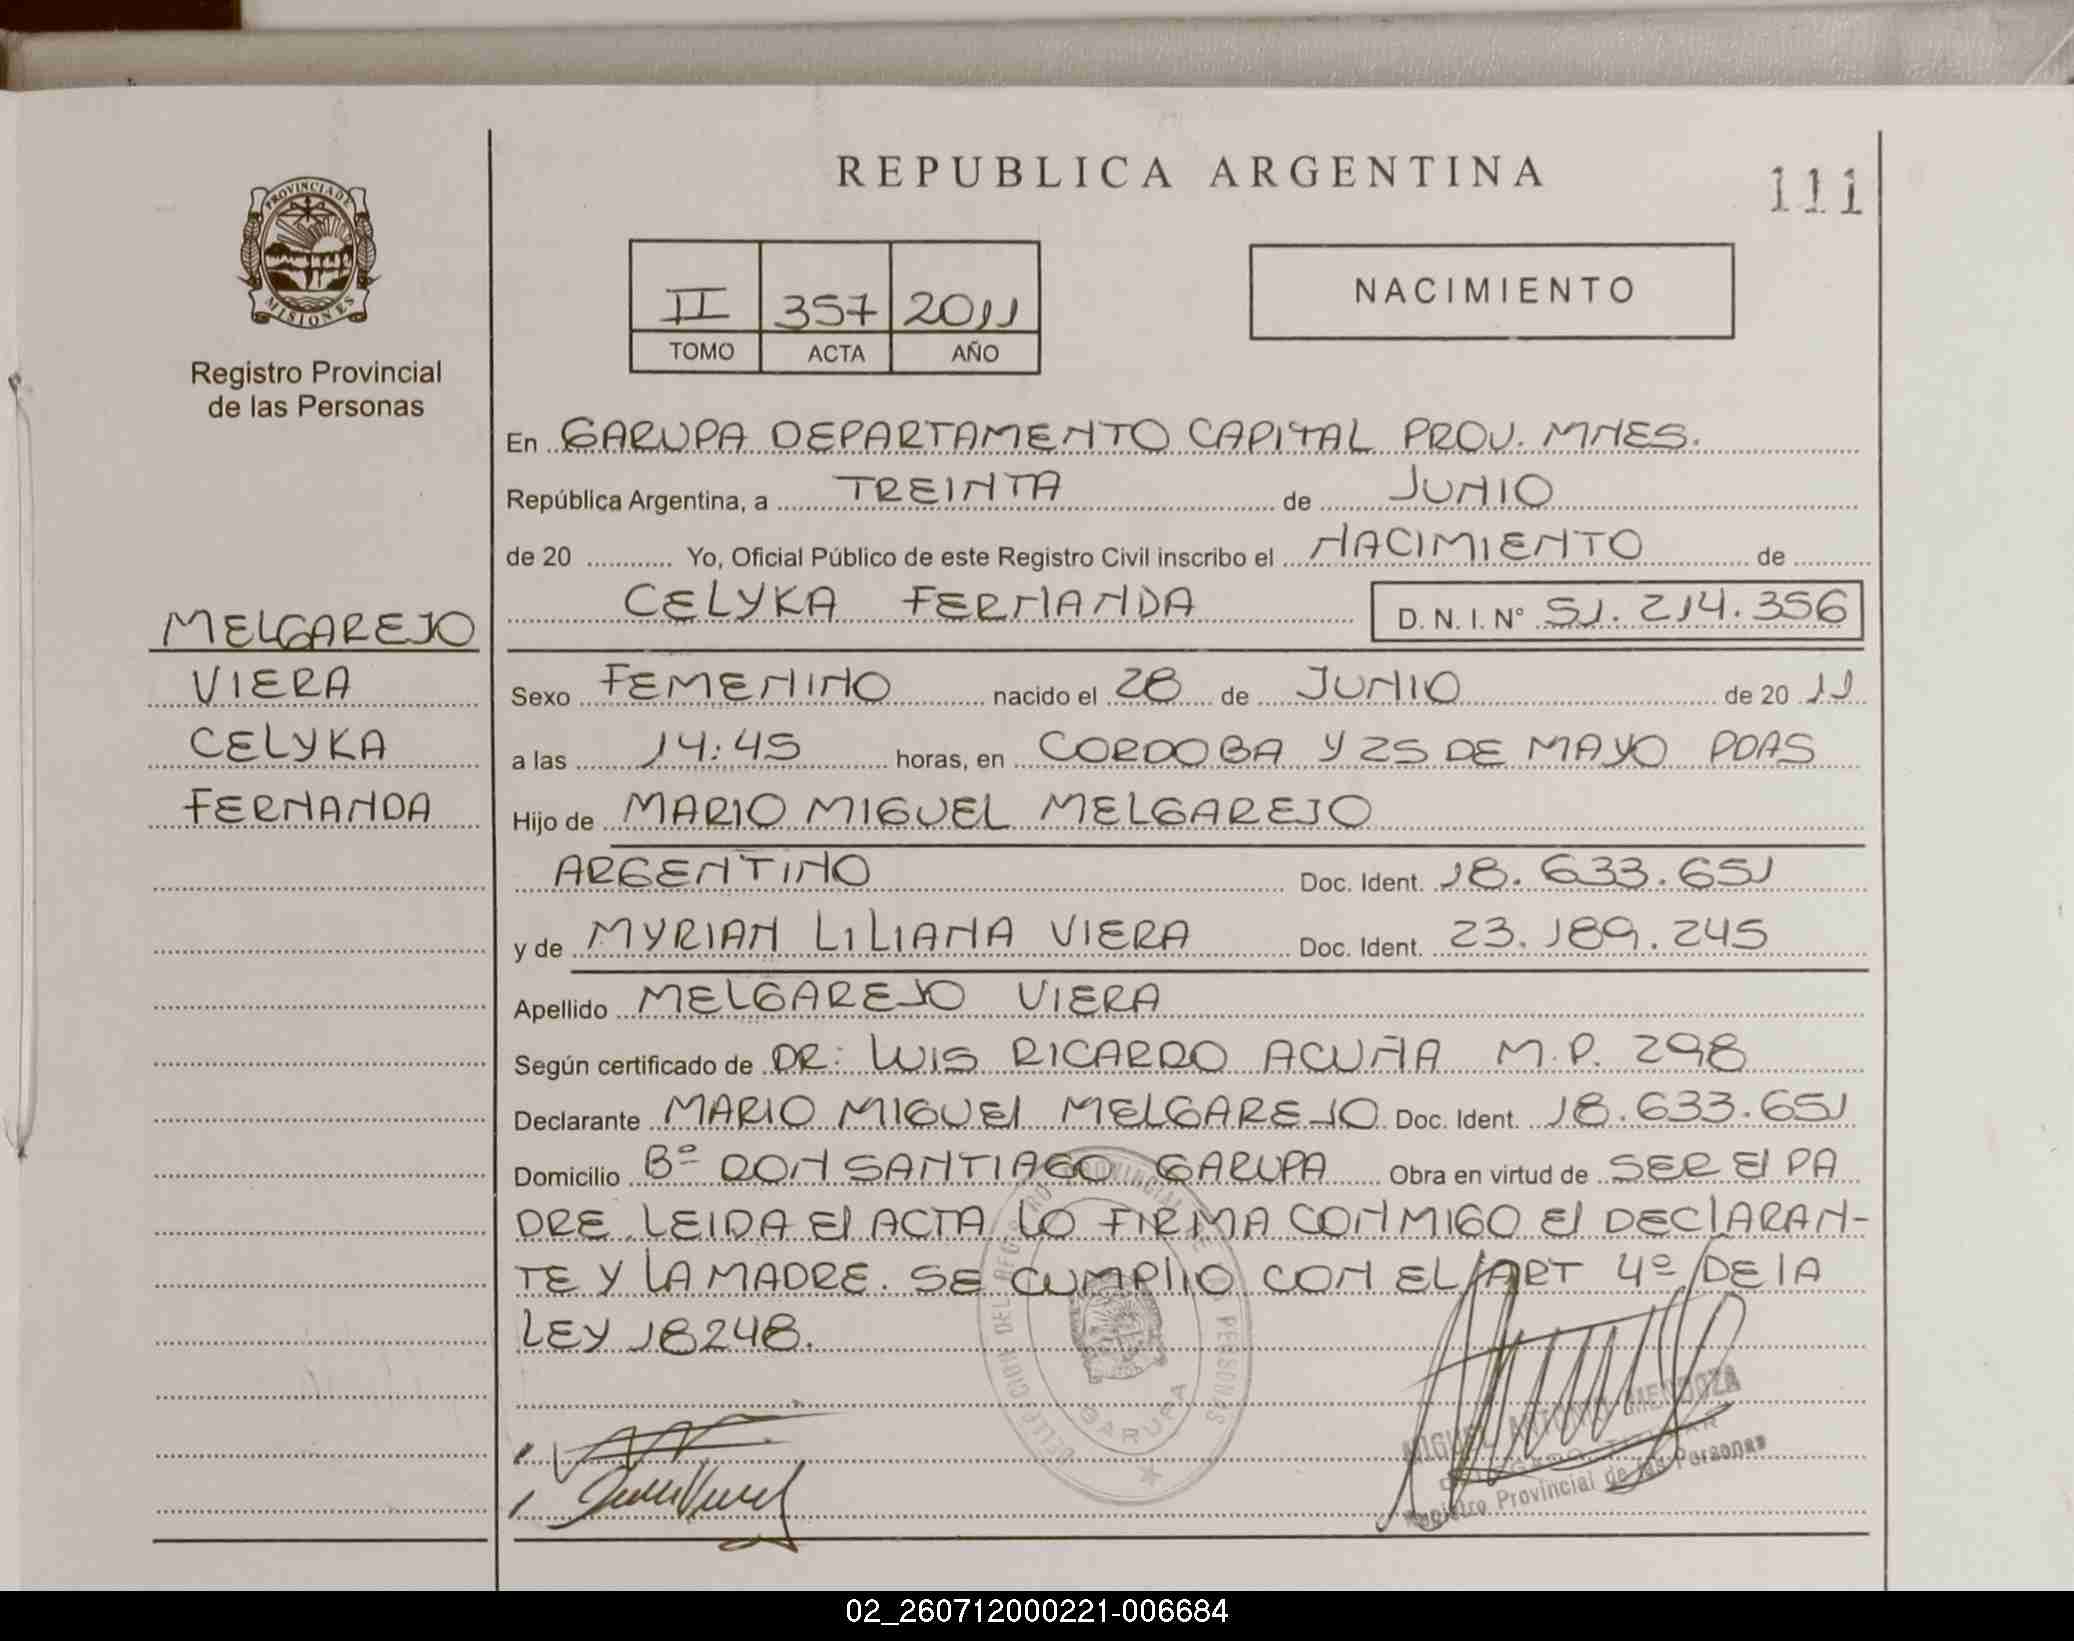 REPUBLICA ARGENTINA
111
PROVINCIA DE
MISIONES
Registro Provincial
de las Personas
II 357 2011
TOMO ACTA AÑO
NACIMIENTO
En GARUPA DEPARTAMENTO CAPITAL PROV. MNES.
República Argentina, a TREINTA de JUNIO
de 20 ............ Yo, Oficial Público de este Registro Civil inscribo el NACIMIENTO de
CELYKA FERNANDA D. N. I. N° 51.214.356
MELGAREJO
VIERA
CELYKA
FERNANDA
Sexo FEMENINO nacido el 28 de JUNIO de 20 11
a las 14:45 horas, en CORDOBA Y 25 DE MAYO PDAS
Hijo de MARIO MIGUEL MELGAREJO
ARGENTINO Doc. Ident. 18.633.651
y de MYRIAN LILIANA VIERA Doc. Ident. 23.189.245
Apellido MELGAREJO VIERA
Según certificado de DR: LUIS RICARDO ACUÑA M.P. 298
Declarante MARIO MIGUEL MELGAREJO Doc. Ident. 18.633.651
Domicilio Bº DON SANTIAGO GARUPA Obra en virtud de SER El PA
DRE. LEIDA El ACTA LO FIRMA CONMIGO El DEClARAN-
TE Y LA MADRE. SE CUMPlIO CON EL ART 4º DE lA
LEY 18248.
DELEGACION DEL REGISTRO PROVINCIAL DE LAS PERSONAS
GARUPA
MIGUEL ANTONIO MENDOZA
DELEGADO TITULAR
Registro Provincial de las Personas
02_260712000221-006684